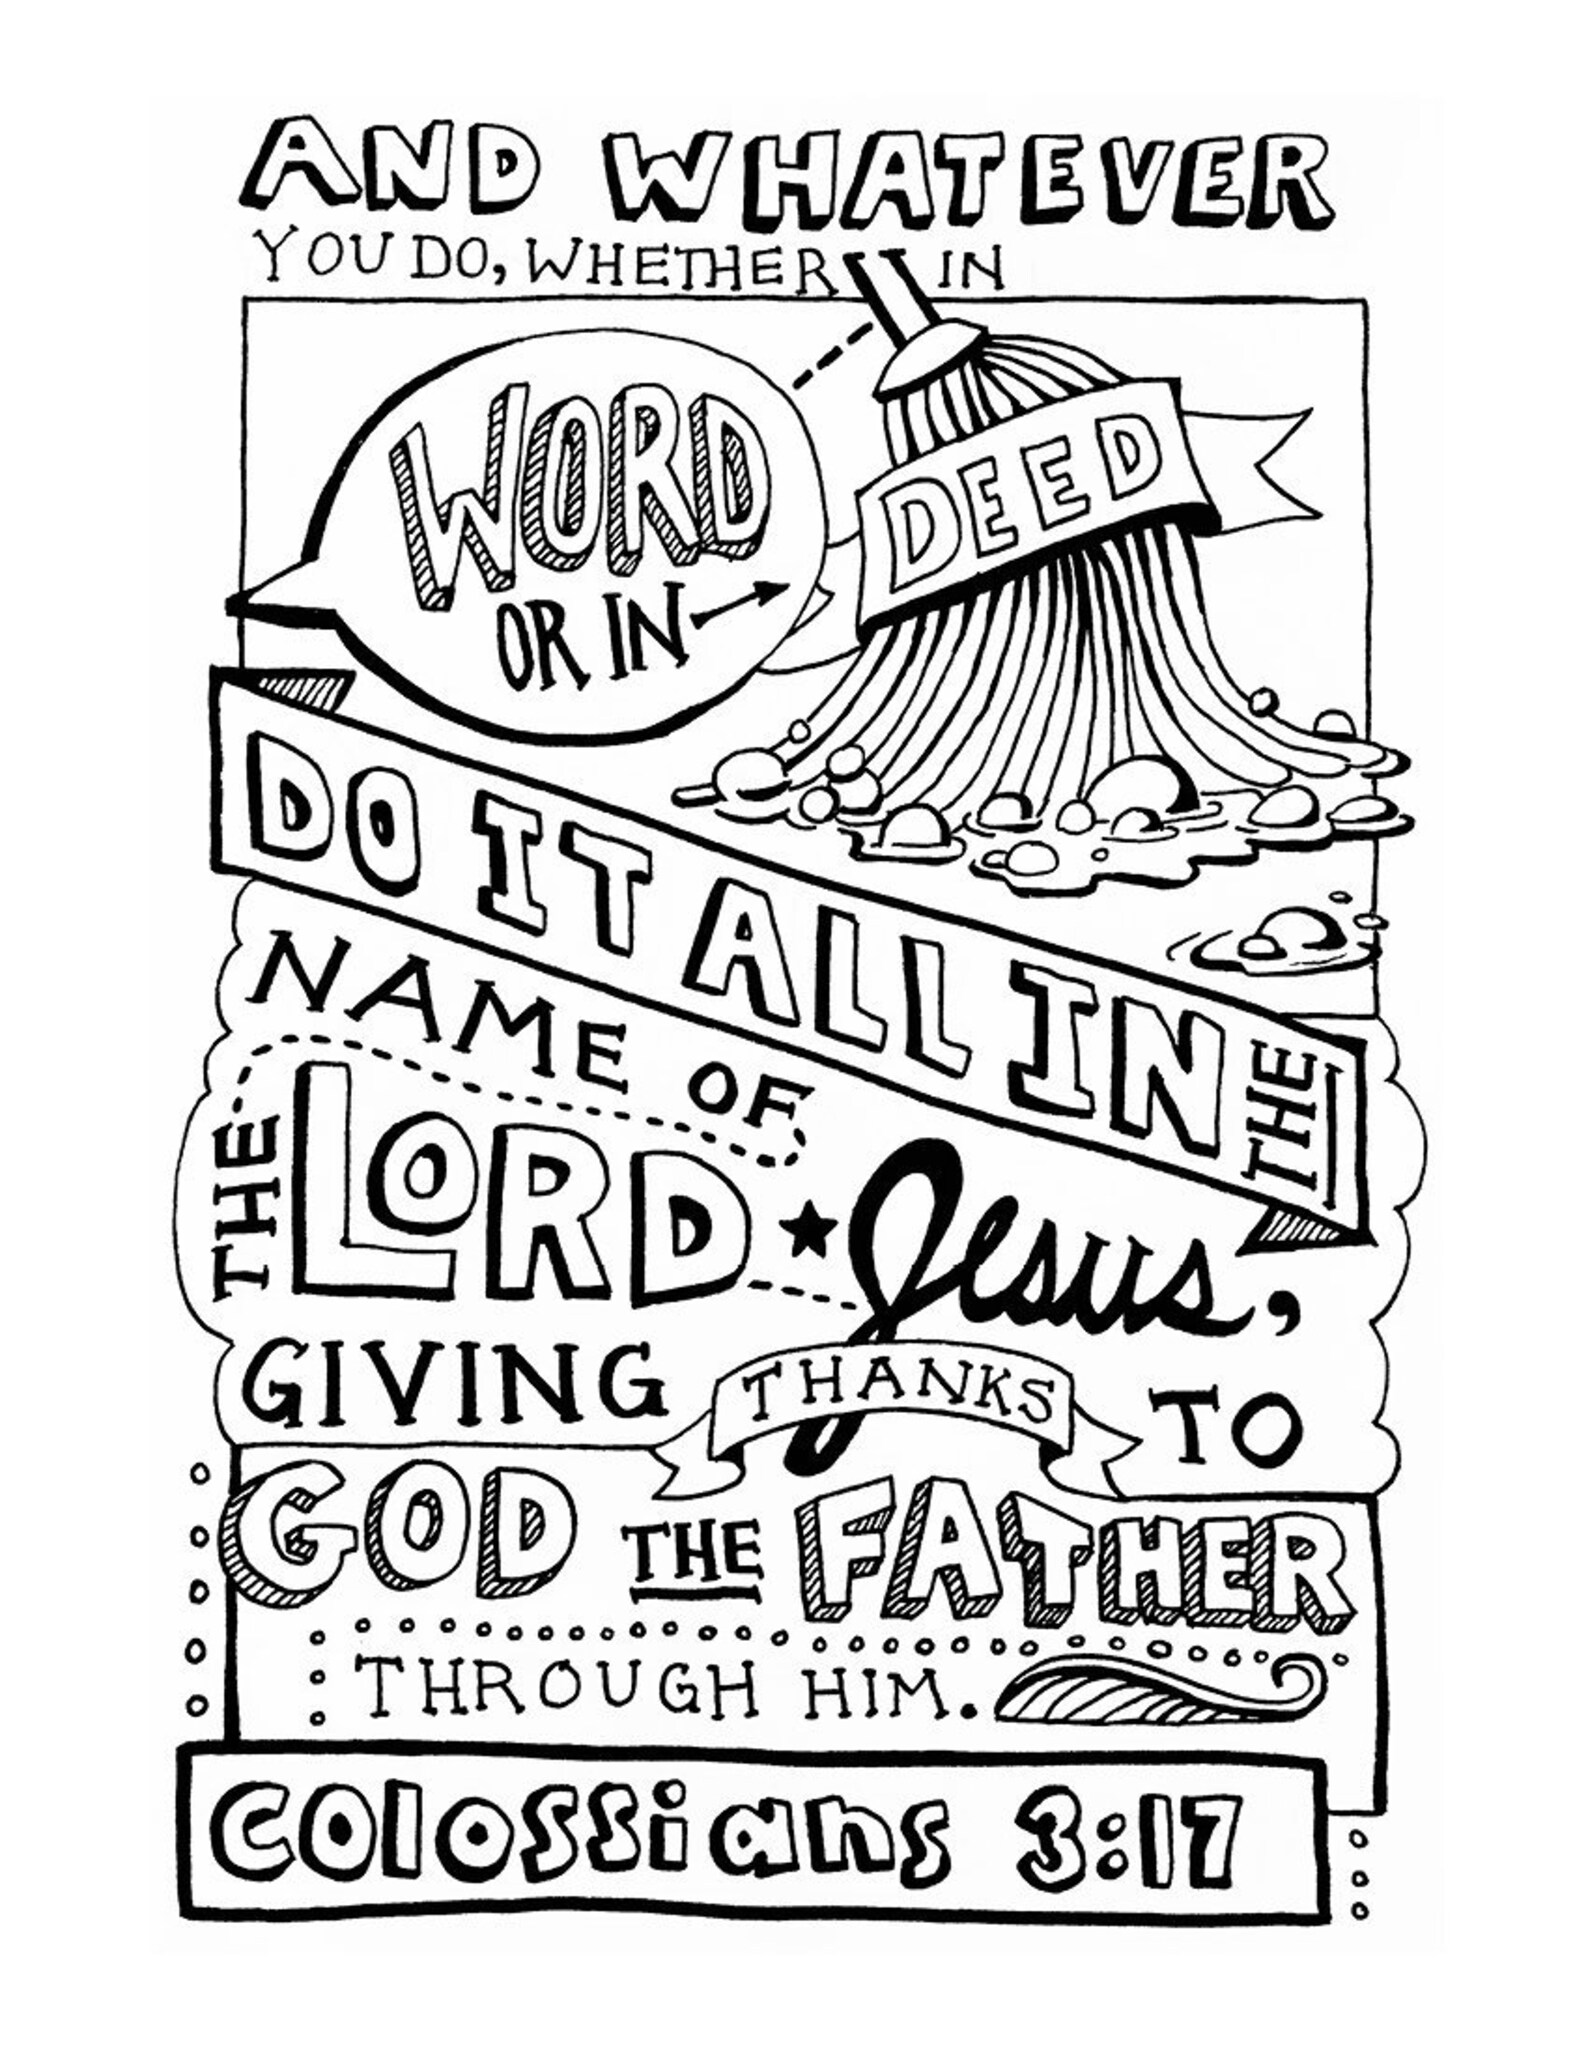 AND WHATEVER
YOU DO, WHETHER IN
WORD
OR IN
DEED
DO IT ALL IN THE
NAME OF
THE LORD Jesus,
GIVING THANKS TO
GOD THE FATHER
THROUGH HIM.
Colossians 3:17